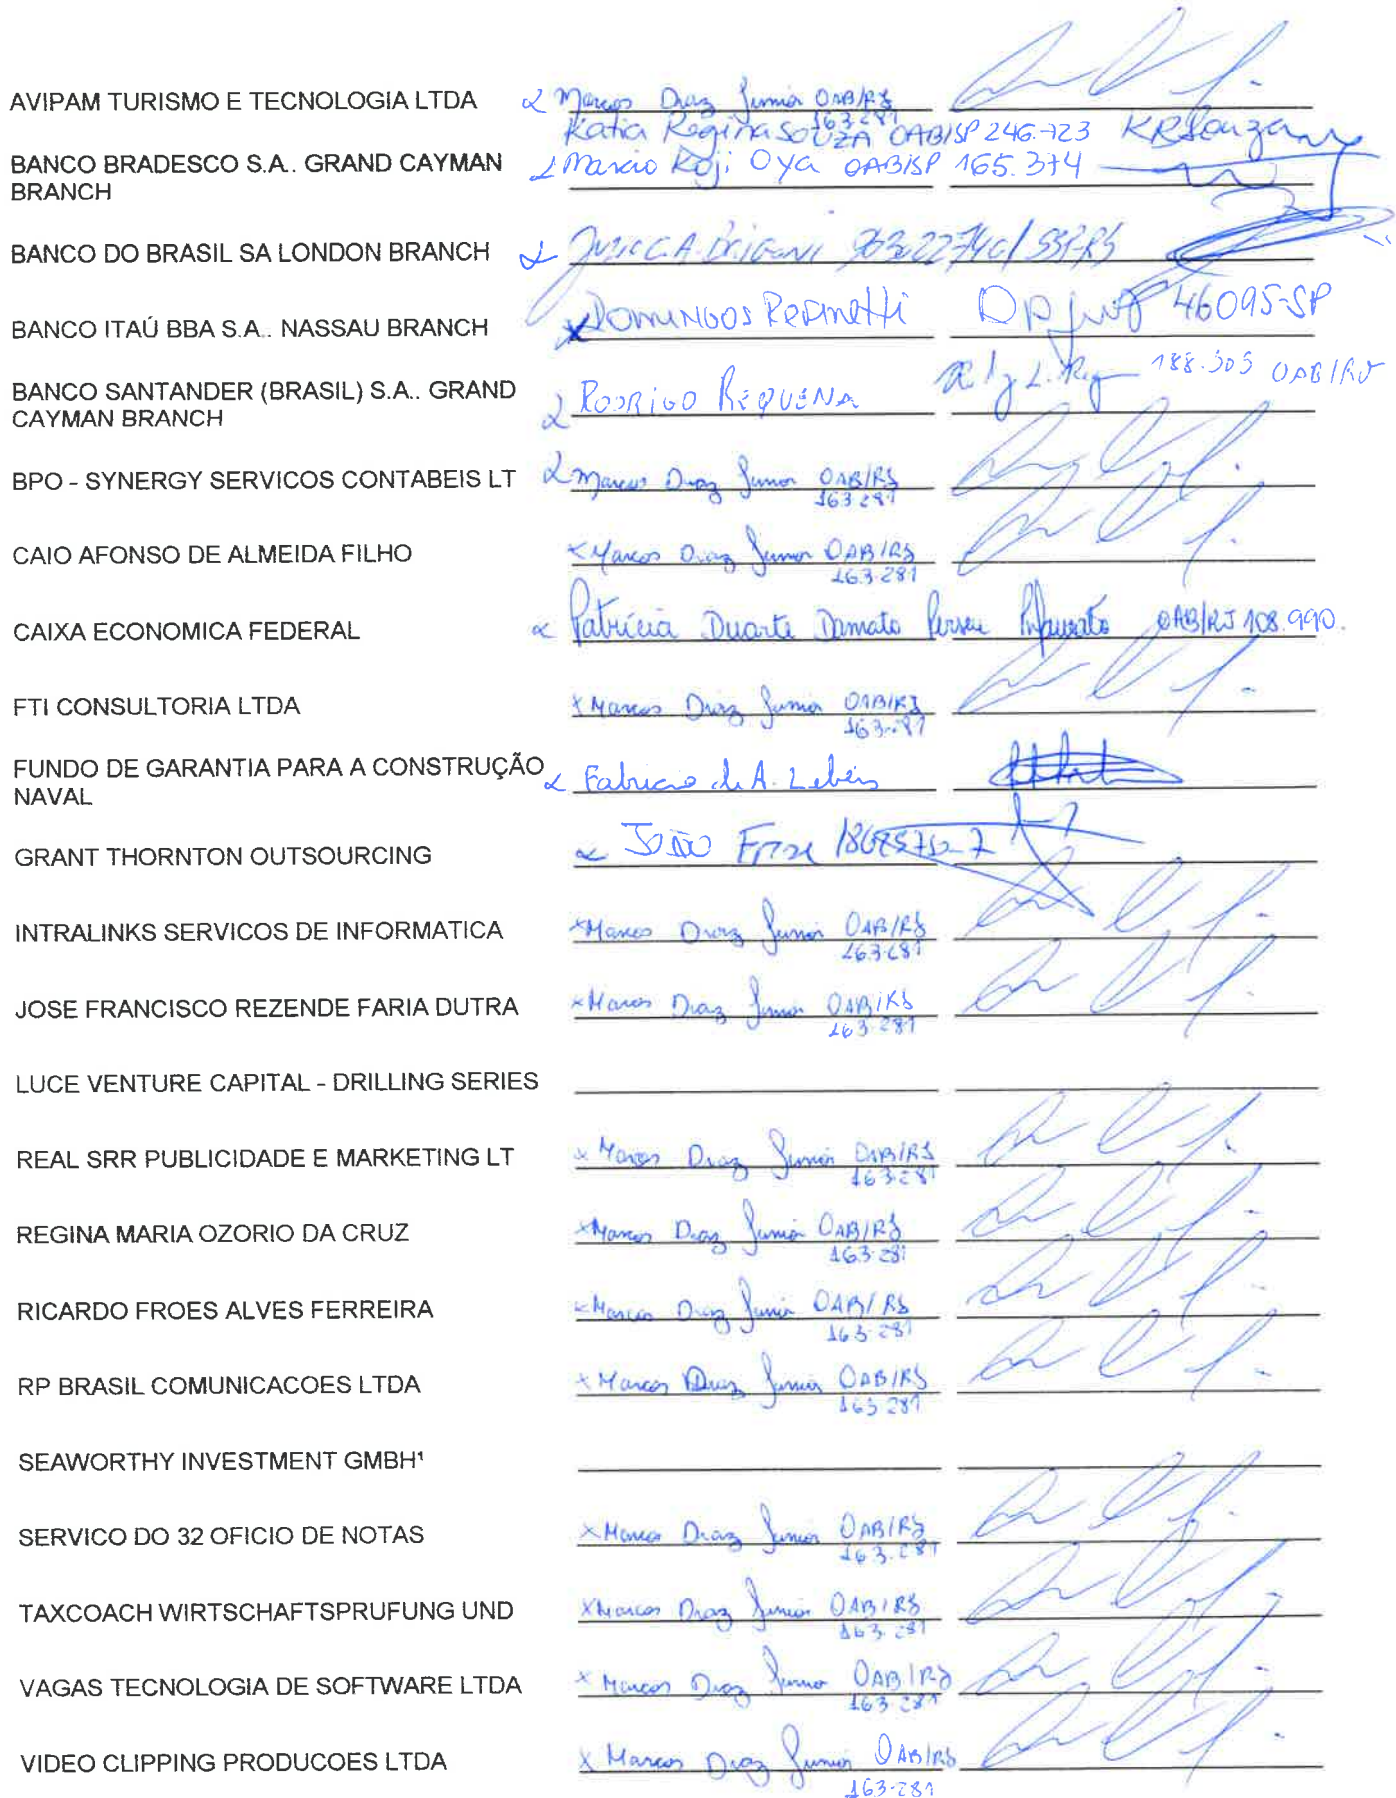 AVIPAM TURISMO E TECNOLOGIA LTDA Marcos Diaz Junior OAB/RJ
163.281
Katia Regina SOUZA OAB/SP 246.723 KRSouza
BANCO BRADESCO S.A.. GRAND CAYMAN Marcio Koji Oya OAB/SP 165.374
BRANCH
BANCO DO BRASIL SA LONDON BRANCH
BANCO ITAÚ BBA S.A.. NASSAU BRANCH DOMINGOS 46095-SP
BANCO SANTANDER (BRASIL) S.A.. GRAND RODRIGO REQUENA 188.505 OAB/RJ
CAYMAN BRANCH
BPO - SYNERGY SERVICOS CONTABEIS LT Marcos Diaz Junior OAB/RJ
163.281
CAIO AFONSO DE ALMEIDA FILHO x Marcos Diaz Junior OAB/RJ
163.281
CAIXA ECONOMICA FEDERAL Patrícia Duarte Damato OAB/RJ 108.990.
FTI CONSULTORIA LTDA x Marcos Diaz Junior OAB/RJ
163.281
FUNDO DE GARANTIA PARA A CONSTRUÇÃO Fabricio de A. Lebeis
NAVAL
GRANT THORNTON OUTSOURCING JOÃO
INTRALINKS SERVICOS DE INFORMATICA x Marcos Diaz Junior OAB/RJ
163.281
JOSE FRANCISCO REZENDE FARIA DUTRA x Marcos Diaz Junior OAB/RJ
163.281
LUCE VENTURE CAPITAL - DRILLING SERIES
REAL SRR PUBLICIDADE E MARKETING LT x Marcos Diaz Junior OAB/RJ
163.281
REGINA MARIA OZORIO DA CRUZ x Marcos Diaz Junior OAB/RJ
163.281
RICARDO FROES ALVES FERREIRA x Marcos Diaz Junior OAB/RJ
163.281
RP BRASIL COMUNICACOES LTDA x Marcos Diaz Junior OAB/RJ
163.281
SEAWORTHY INVESTMENT GMBH¹
SERVICO DO 32 OFICIO DE NOTAS x Marcos Diaz Junior OAB/RJ
163.281
TAXCOACH WIRTSCHAFTSPRUFUNG UND x Marcos Diaz Junior OAB/RJ
163.281
VAGAS TECNOLOGIA DE SOFTWARE LTDA x Marcos Diaz Junior OAB/RJ
163.281
VIDEO CLIPPING PRODUCOES LTDA x Marcos Diaz Junior OAB/RJ
163.281